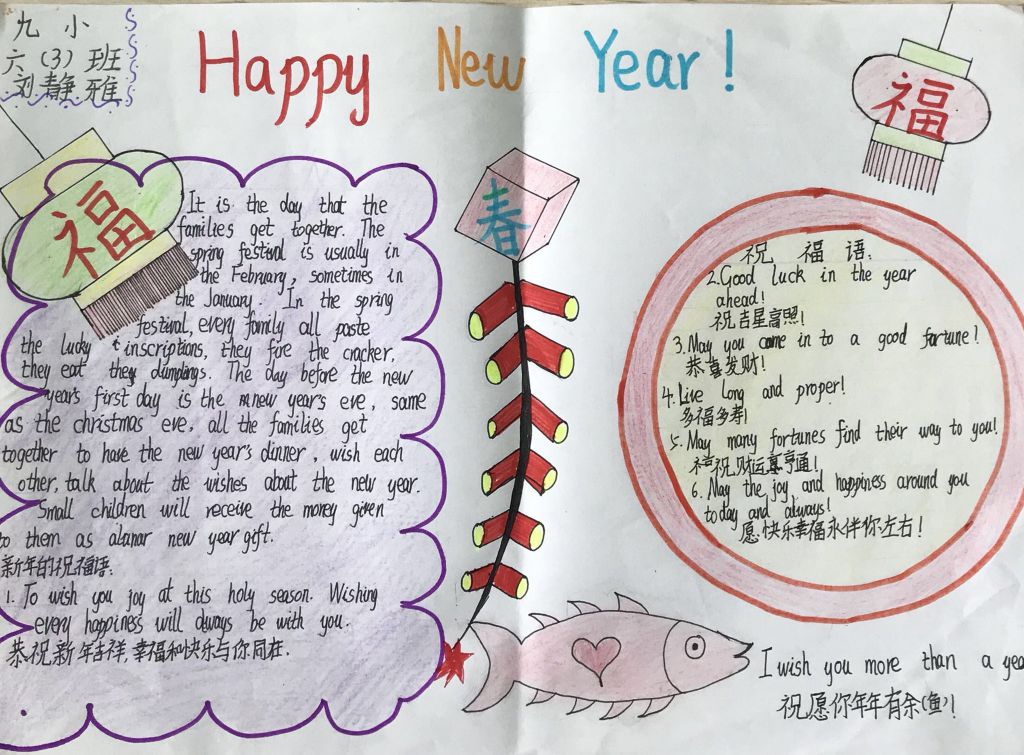 九 小
六(3)班
刘静雅
Happy New Year!
福
福
春
It is the day that the
families get together. The
spring festival is usually in
the February, sometimes in
the January. In the spring
festival, every family all paste
the lucky inscriptions, they fire the cracker,
they eat they dumplings. The day before the new
year's first day is the new year's eve, same
as the christmas eve, all the families get
together to have the new year's dinner, wish each
other, talk about the wishes about the new year.
Small children will receive the money given
to them as alanar new year gift.
新年的祝福语:
1. To wish you joy at this holy season. Wishing
every happiness will always be with you.
恭祝新年吉祥,幸福和快乐与你同在.
祝 福 语:
2.Good luck in the year
ahead!
祝吉星高照!
3.May you come in to a good fortune!
恭喜发财!
4.Live long and proper!
多福多寿!
5.May many fortunes find their way to you!
祝财运亨通!
6.May the joy and happiness around you
today and always!
愿快乐幸福永伴你左右!
I wish you more than a yea
祝愿你年年有余(鱼)!